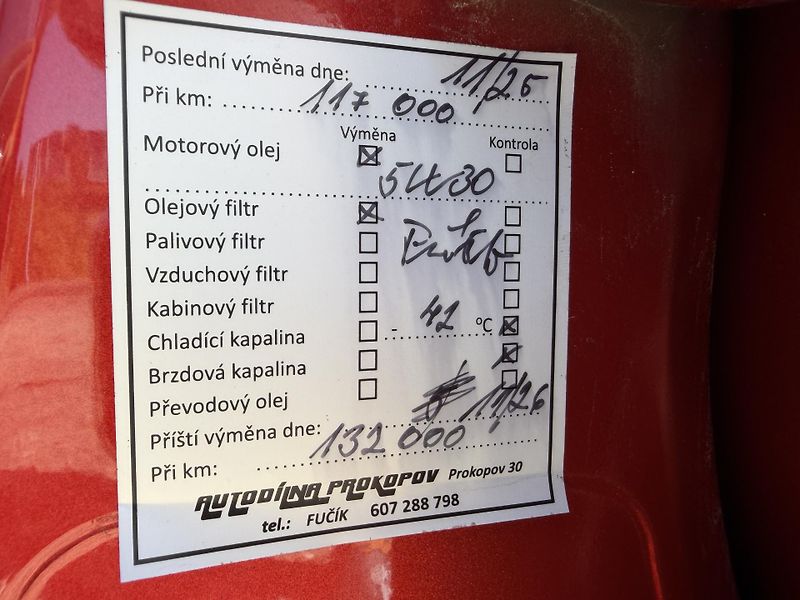 Poslední výměna dne: 11/25
Při km: 117 000
Výměna Kontrola
Motorový olej
5W30
Olejový filtr
Palivový filtr
Vzduchový filtr
Kabinový filtr
Chladící kapalina - 42 °C
Brzdová kapalina
Převodový olej
Příští výměna dne: 11/26
Při km: 132 000
AUTODÍLNA PROKOPOV Prokopov 30
tel.: FUČÍK 607 288 798